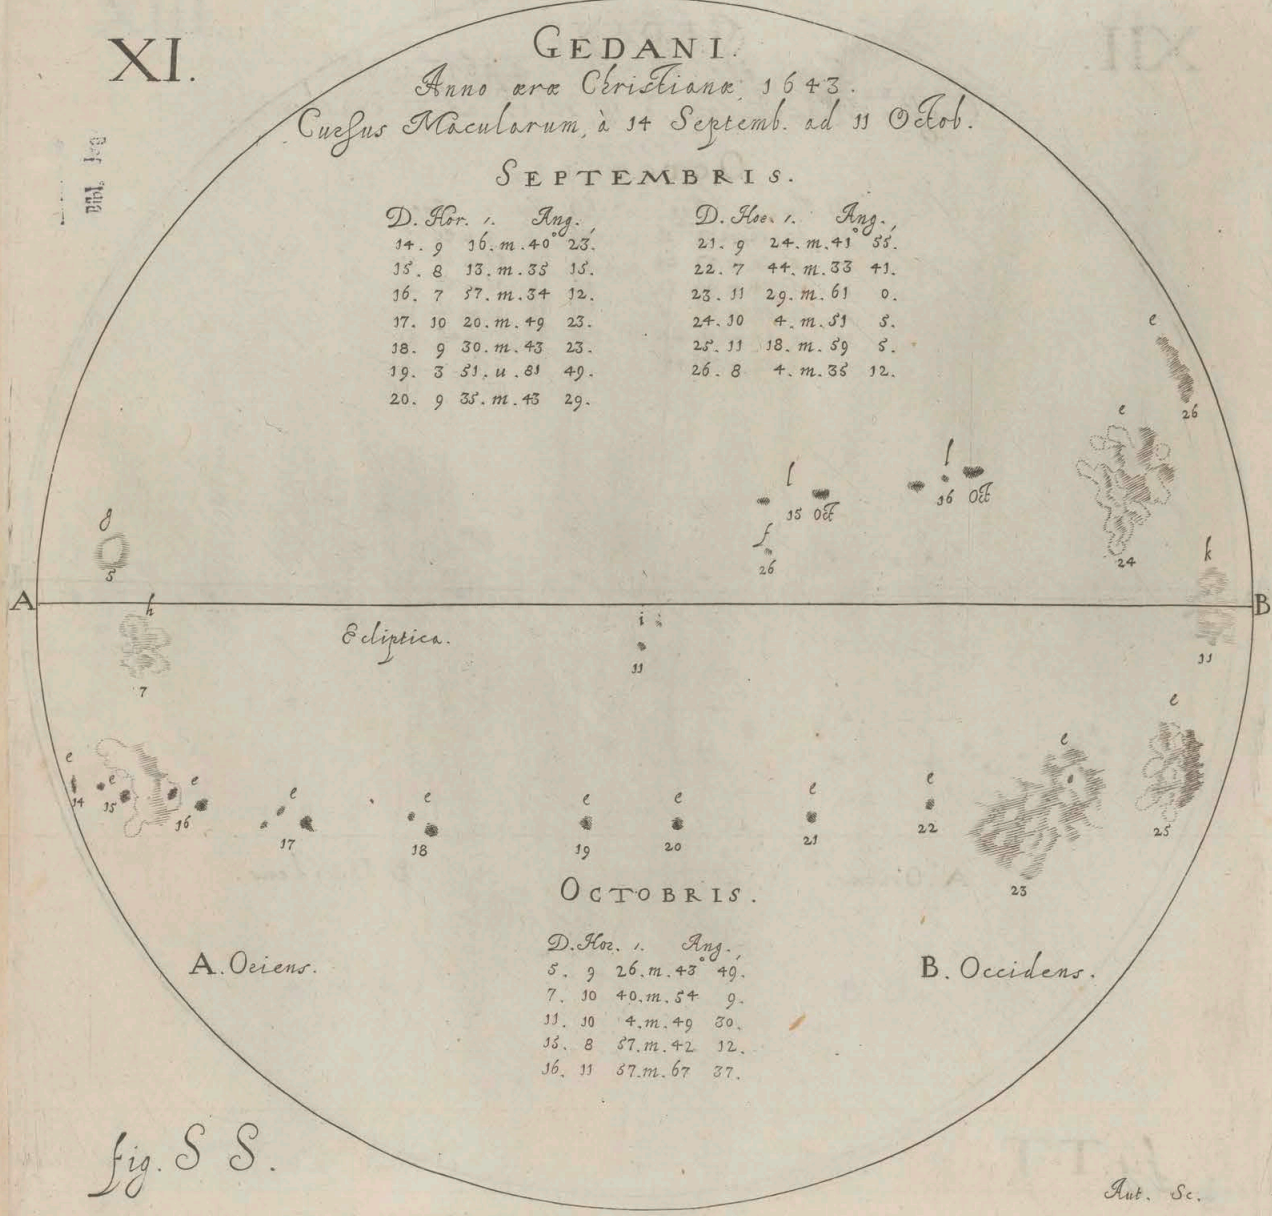 XI.
GEDANI.
Anno æræ Christianæ, 1643.
Cursus Macularum, à 14 Septemb. ad 11 Octob.
Bibl. Jag
SEPTEMBRIS.
D. Hor. ,. Ang. ,
14. 9 16. m. 40° 23.
15. 8 13. m. 35 15.
16. 7 57. m. 34 12.
17. 10 20. m. 49 23.
18. 9 30. m. 43 23.
19. 3 51. u. 81 49.
20. 9 35. m. 43 29.
D. Hor. ,. Ang. ,
21. 9 24. m. 41° 55.
22. 7 44. m. 33 41.
23. 11 29. m. 61 0.
24. 10 4. m. 51 5.
25. 11 18. m. 59 5.
26. 8 4. m. 35 12.
e
26
e
24
l
15 Oct
l
16 Oct
f
26
g
5
k
11
A
B
h
7
Ecliptica.
i
11
e
14
e
15
e
16
e
17
e
18
e
19
e
20
e
21
e
22
e
23
e
25
OCTOBRIS.
D. Hor. ,. Ang. ,
5. 9 26. m. 43° 49.
7. 10 40. m. 54 9.
11. 10 4. m. 49 30.
15. 8 57. m. 42 12.
16. 11 37. m. 67 37.
A. Oriens.
B. Occidens.
fig. S S.
Aut. Sc.